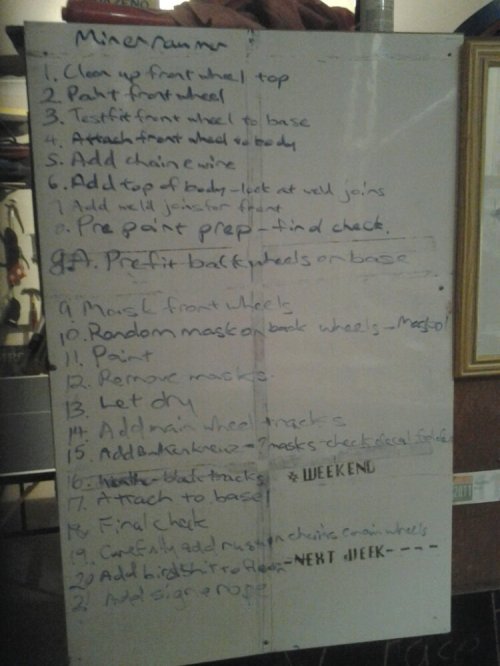 1. Clean up front wheel top
2. Paint front wheel
3. Testfit front wheel to base
4. Attach front wheel to body
5. Add chain & wire
6. Add top of body - look at weld joins
7 Add weld joins for front
8. Pre paint prep - final check.
8.A. Prefit back wheels on base
9 Mask front wheels
10. Random mask on back wheels -
11. Paint
12. Remove masks.
13. Let dry
14. Add main wheel tracks
15. Add - ? masks - check decal
16. back tracks
* WEEKEND
17. Attach to base
18. Final check
19. Carefully add rust on chains & main wheels
- NEXT WEEK - - - -
20 Add bird shit to
21 Add sign & rope